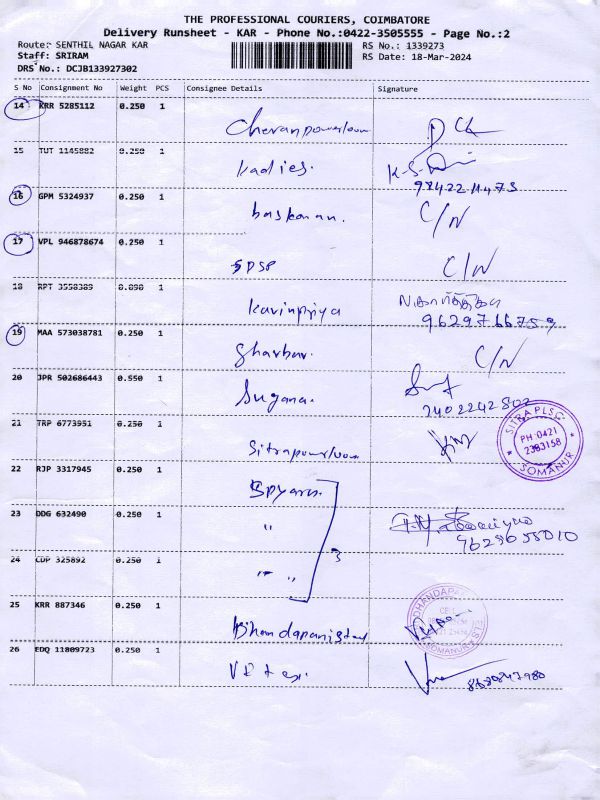 THE PROFESSIONAL COURIERS, COIMBATORE
Delivery Runsheet - KAR - Phone No.:0422-3505555 - Page No.:2
Route: SENTHIL NAGAR KAR RS No.: 1339273
Staff: SRIRAM RS Date: 18-Mar-2024
DRS No.: DCJB133927302
S No Consignment No Weight PCS Consignee Details Signature
14 KRR 5285112 0.250 1
Cheranpowerloom
15 TUT 1145882 0.250 1
kadies.
K-S-
16 GPM 5324937 0.250 1
baskaran. C/N
17 VPL 946878674 0.250 1
SPSP C/N
18 RPT 3558389 0.090 1
Kavinpriya
9629766759
19 MAA 573038781 0.250 1
C/N
20 JPR 502686443 0.550 1
Sugana.
21 TRP 6773951 0.250 1
Sitrapowerloom
SITRA PLSC
PH:0421
2383158
SOMANUR
22 RJP 3317945 0.250 1
23 DDG 632490 0.250 1
"
24 CDP 325892 0.250 1
" "
3
25 KRR 887346 0.250 1
SOMANUR
26 EDQ 11809723 0.250 1